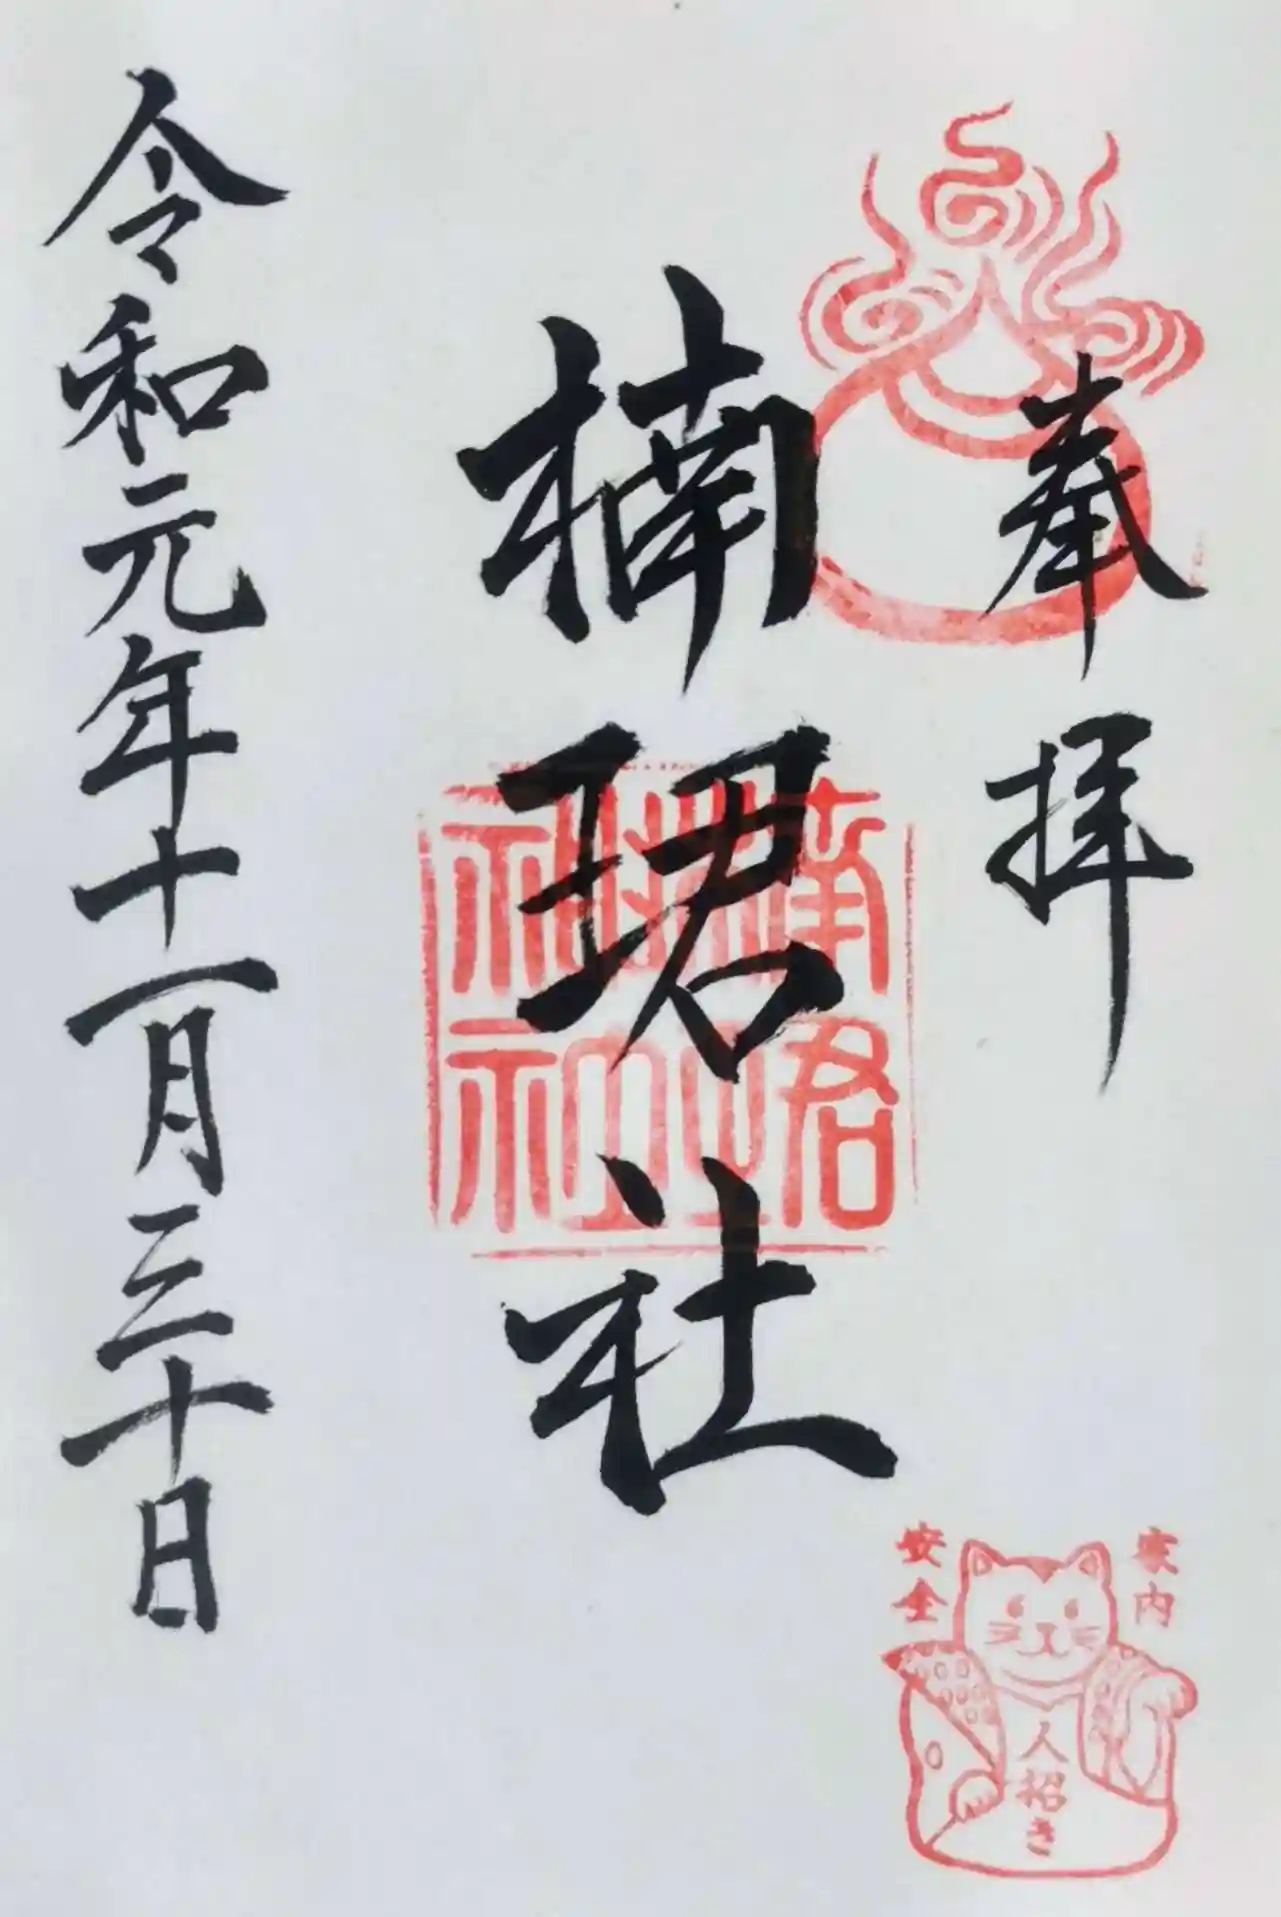 奉拝
楠珺社
令和元年十一月三十日
家内
安全
人招き